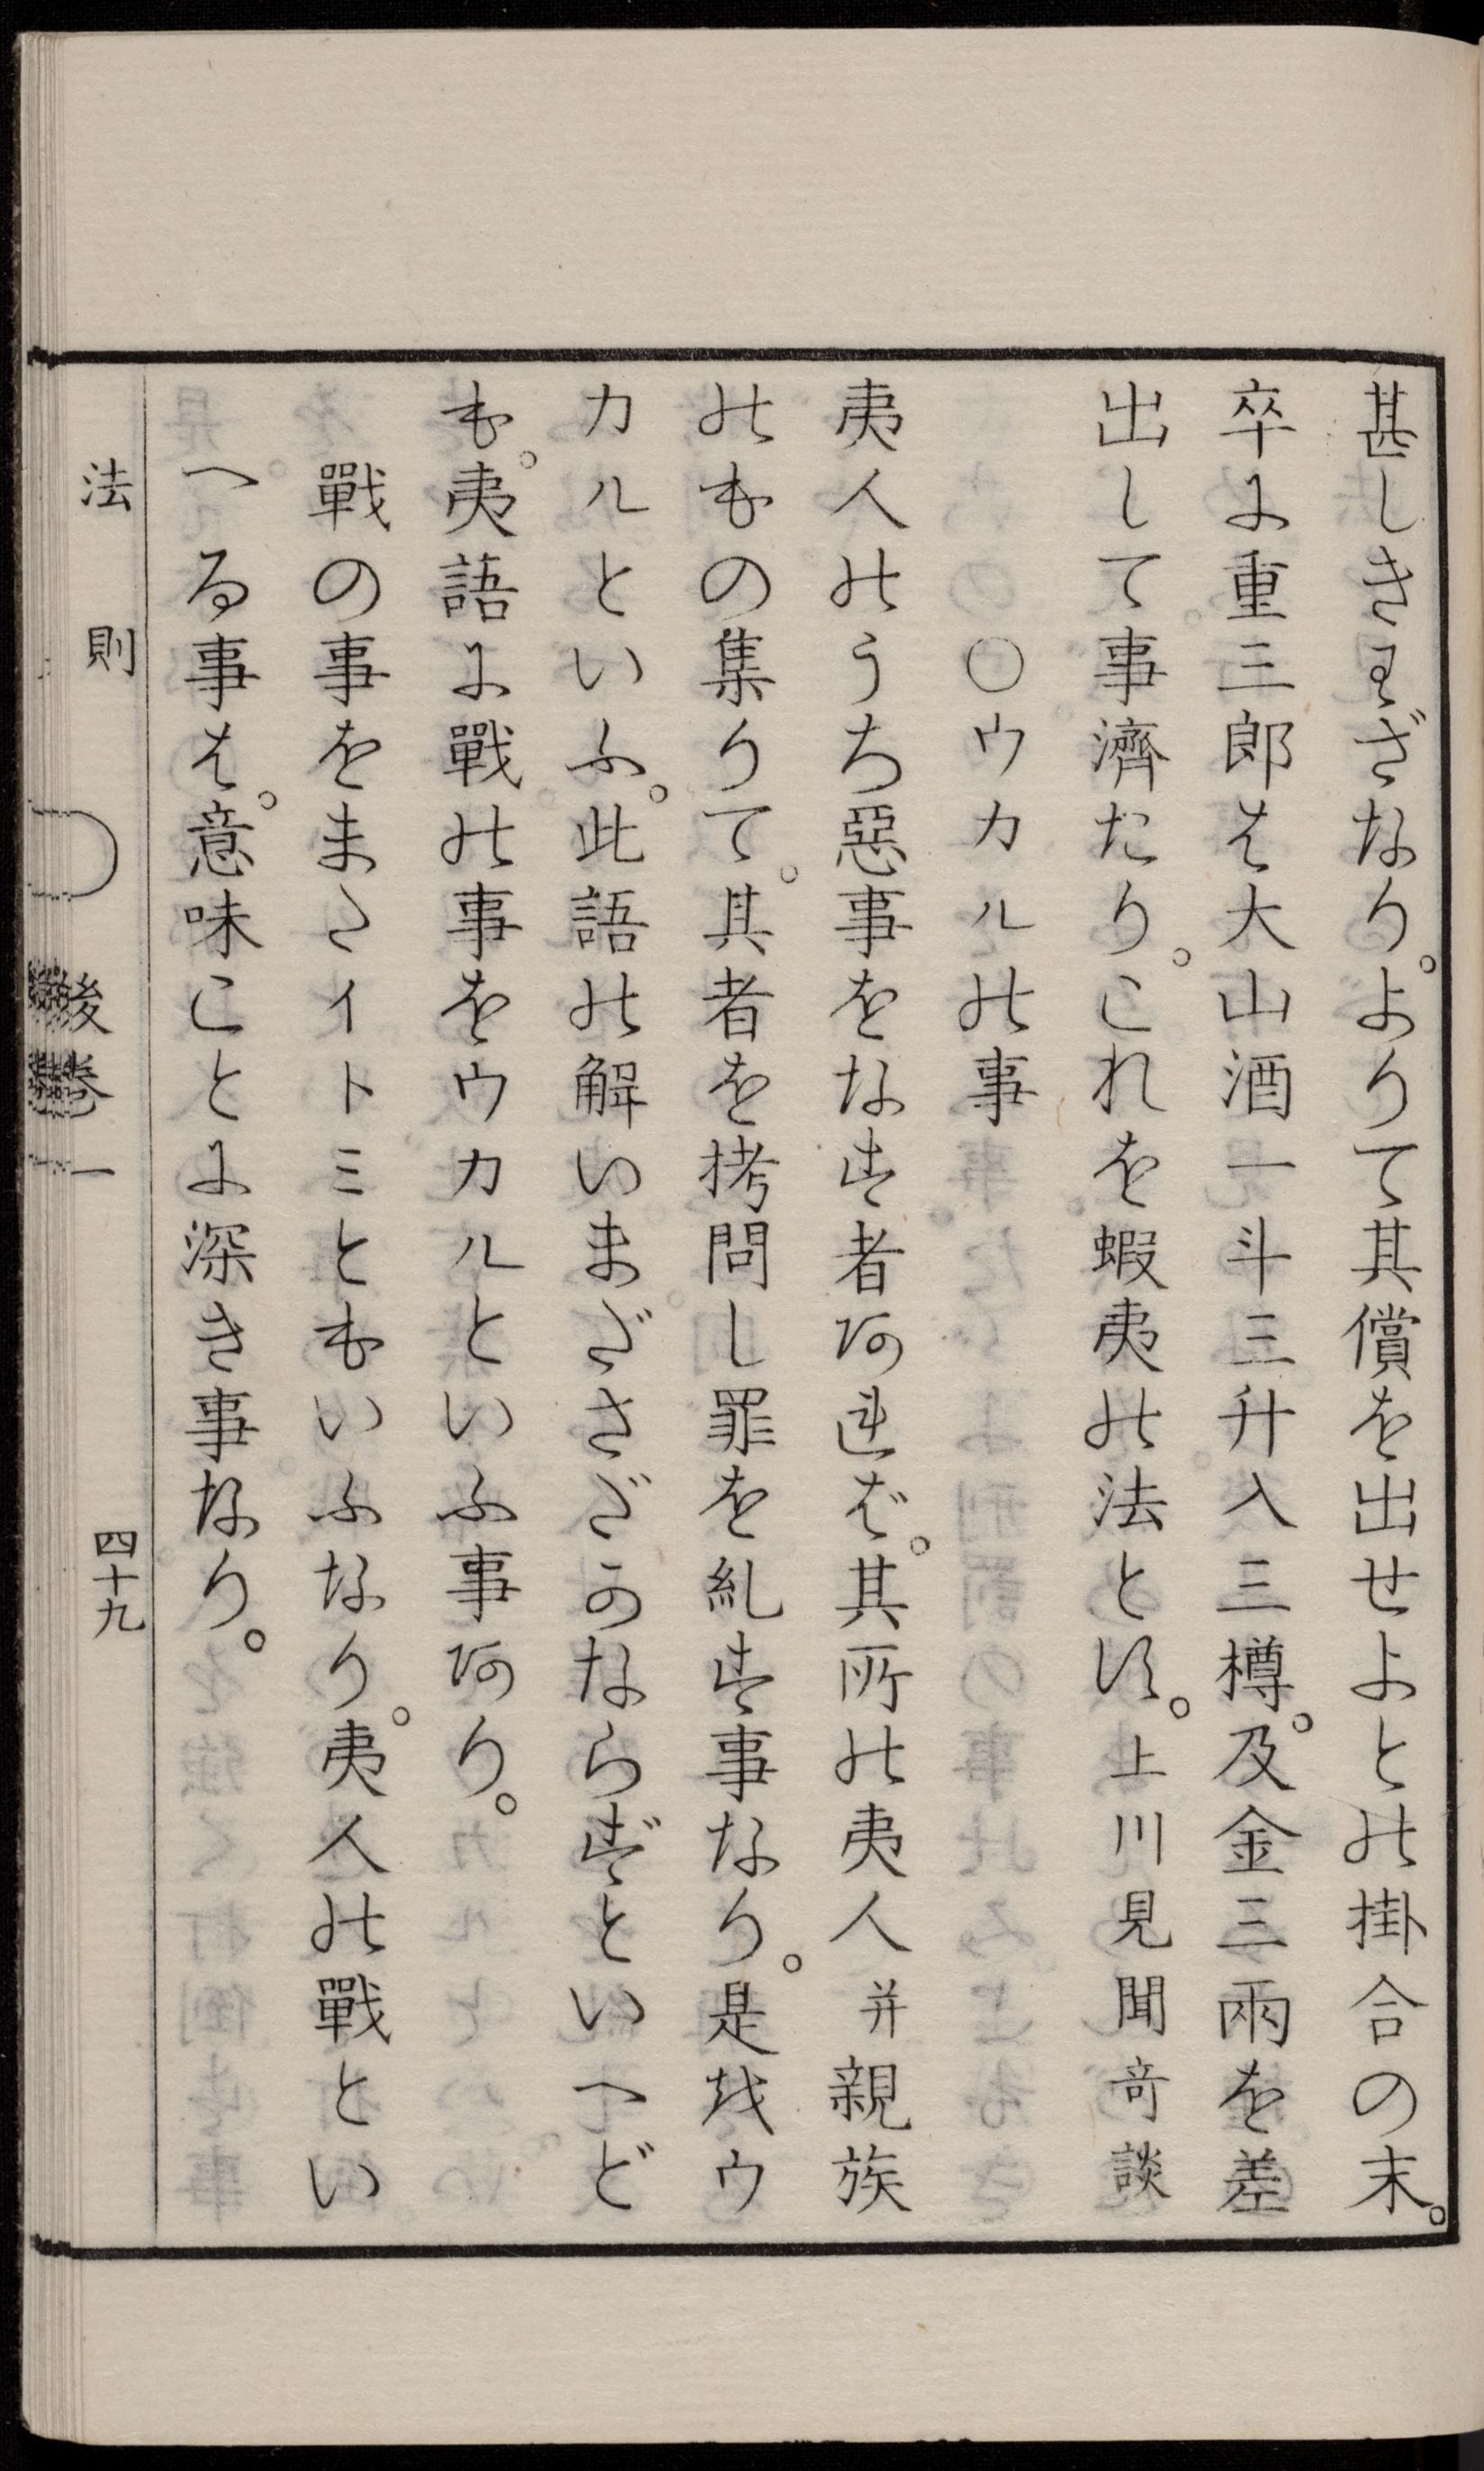 甚しきわざなり。よりて其償を出せよとの掛合の末。
卒に重三郎は大山酒一斗三升入三樽。及金三兩を差
出して事濟たり。これを蝦夷の法とす。上川見聞奇談
○ウカルの事
夷人のうち惡事をなす者あれば。其所の夷人并親族
のもの集りて。其者を拷問し罪を糺す事なり。是をウ
カルといふ。此語の解いまださだかならずといへど
も。夷語に戰の事をウカルといふ事あり。
戰の事をまたイトミともいふなり。夷人の戰とい
へる事は。意味ことに深き事なり。
法則 後卷一 四十九